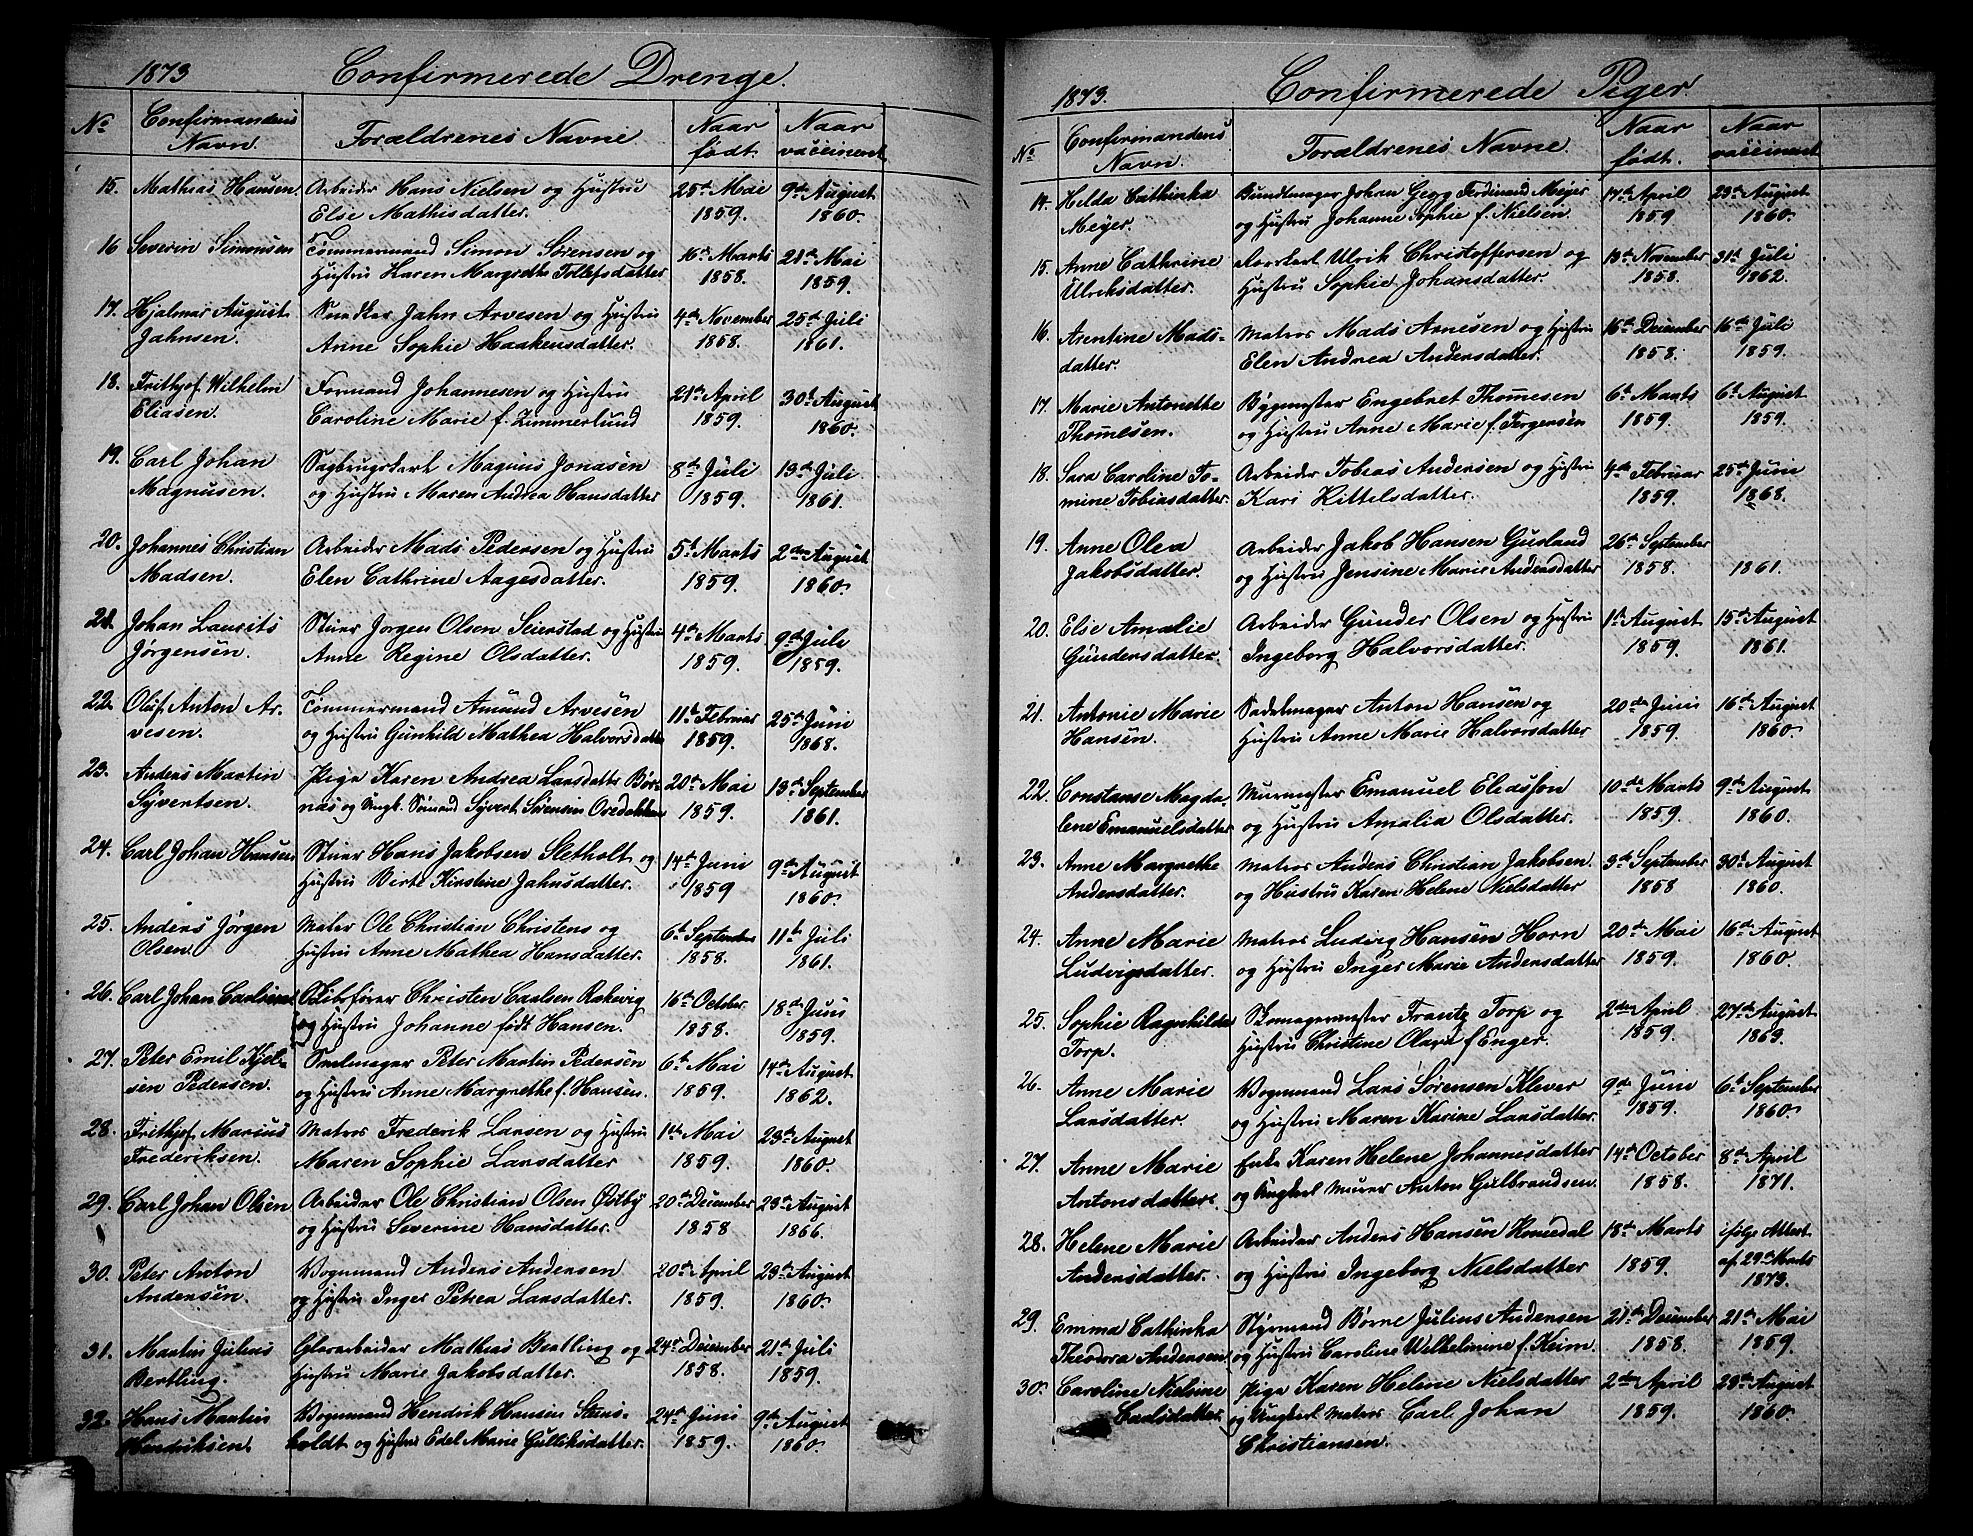 1873 Confirmerede Drenge.
No Confirmandens Navn. Forældrenes Navne. Naar født. Naar vaccineret
15. Mathias Hansen. Arbeider Hans Nielsen og Hustru 25de Mai 9de August
Else Mathisdatter. 1859. 1860.
16 Severin Simonsen Tømmermand Simon Sørensen og 16de Marts 21de Mai
Hustru Karen Margrethe Tollefsdatter 1858. 1859.
17. Hjalmar August Snedker Jahn Arvesen og Hustru 4de November 25de Juli
Jahnsen. Anne Sophie Haakensdatter. 1858. 1861.
18. Frithjof Wilhelm Formand Johannesen og Hustru 21de April 30te August
Eliasen. Caroline Marie f. Zimmerlund 1859. 1860.
19. Carl Johan Sagbrugskarl Magnus Jonasen 8de Juli 13de Juli
Magnusen. og Hustru Maren Andrea Hansdatter 1859. 1861.
20. Johannes Christian Arbeider Mads Pedersen og Hustru 5te Marts 2den August
Madsen. Elen Cathrine Aagesdatter. 1859. 1860.
21. Johan Laurits Stuer Jørgen Olsen Seierstad og Hustru 4de Marts 9de Juli
Jørgensen. Anne Regine Olsdatter. 1859. 1859.
22. Oluf Anton Ar- Tømmermand Amund Arvesen 11te Februar 25de Juni
vesen. og Hustru Gunhild Mathea Halvorsdatter 1859. 1868.
23. Anders Martin Pige Karen Andrea Larsdatter Bør- 20de Mai 13de September
Syvertsen. nas og Ungk. Sømand Syvert Sørensen 1859. 1861.
24. Carl Johan Hansen Stuer Hans Jakobsen Sletholt og 14de Juni 9de August
Hustru Birte Kirstine Jahnsdatter. 1859 1860.
25. Anders Jørgen Matros Ole Christian Christens og 6te September 11te Juli
Olsen. Hustru Anne Mathea Hansdatter. 1858. 1861.
26. Carl Johan Carlsen Skibsfører Christen Carlsen Røkevig 16de October 18de Juni
og Hustru Johanne født Hansen. 1858. 1859.
27. Peter Emil Kjel- Smelmager Peter Martin Pedersen 6te Mai 14de August
sen Pedersen. og Hustru Anne Margrethe f. Hansen. 1859. 1862.
28. Frithjof Marius Matros Frederik Larsen og Hustru 1ste Mai 23de August
Frederiksen. Maren Sophie Larsdatter 1859. 1860.
29. Carl Johan Olsen Arbeider Ole Christian Olsen Østby 20de December 23de August
og Hustru Severine Hansdatter. 1858 1866.
30. Peter Anton Vognmand Anders Andersen 20de April 23de August
Andersen. og Hustru Inger Petrea Larsdatter. 1859. 1860.
31. Martin Julius Glasarbeider Mathias Bertling og 24de December 21de Juli
Bertling. Hustru Marie Jakobsdatter. 1858. 1859.
32. Hans Martin Vognmand Hendrik Hansen Stens- 24de Juni 9de August
Hendriksen. holdt og Hustru Edel Marie Gulliksdatter. 1859. 1860.
1873. Confirmerede Piger.
No Confirmandens Navn. Forældrenes Navne. Naar født. Naar vaccineret
14. Helda Cathinka Bundtmager Johan Georg Ferdinand Meyer 17de April 23de August
Meyer. og Hustru Johanne Sophie f. Nielsen. 1859 1860.
15. Anne Cathrine Ulrik Christoffersen og 13de November 31te Juli
Ulriksdatter. Hustru Sophie Johansdatter. 1858. 1862.
16. Arentine Mads- Matros Mads Arnesen og Hustru 16de December 16de Juli
datter. Elen Andrea Andersdatter. 1858. 1859.
17. Marie Antonette Bygmester Engebret Thomesen 6te Marts 6te August
Thomesen. og Hustru Anne Marie f. Jørgensen 1859. 1859.
18. Sara Caroline To- Arbeider Tobias Andersen og Hustru 4de Februar 25de Juni
mine Tobiasdatter. Kari Kittelsdatter. 1859. 1868.
19. Anne Olea Arbeider Jakob Hansen Gusland 26de September
Jakobsdatter. og Hustru Jensine Marie Andersdatter 1858. 1861.
20. Else Amalie Arbeider Gunder Olsen og Hustru 1ste August 15de August
Gundersdatter. Ingeborg Halvorsdatter. 1859. 1861.
21. Antonie Marie Sadelmager Anton Hansen og 20de Juni 16de August
Hansen. Hustru Anne Marie Halvorsdatter 1859. 1860.
22. Constanse Magda- Murmester Emanuel Eliasson 10de Marts 9de August
lene Emanuelsdatter og Hustru Amalia Olsdatter. 1859. 1860.
23. Anne Margrethe Matros Anders Christian Jakobsen. 3de September 30te August
Andersdatter. og Hustru Karen Helene Nielsdatter 1858 1860.
24. Anne Marie Matros Ludvig Hansen Horn 20de Mai 16de August
Ludvigsdatter. og Hustru Inger Marie Andersdatter 1859. 1860.
25. Sophie Ragnhilde Frantz Torp og 2den April 27de August
Torp. Hustru Christine Olava f Enger. 1859. 1869.
26. Anne Marie Vognmand Lars Sørensen Klever 9de Juni 6te September
Larsdatter. og Hustru Maren Karine Larsdatter. 1859. 1860.
27. Anne Marie Enke Karen Helene Johannesdatter 14de October 8de April
Antonsdatter. og Ungkarl Murer Anton Gulbrandsen. 1858. 1871.
28. Helene Marie Arbeider Anders Hansen Romedal 18de Marts ifølge Attest
Andersdatter. og Hustru Ingeborg Nielsdatter 1859. af 29de Marts
1873.
29. Emma Cathinka Styrmand Børne Julius Andersen 21de December 21de Mai
Theodora Andersen. og Hustru Caroline Wilhelmine f. Heim. 1858. 1859.
30. Caroline Nielsine Pige Karen Helene Nielsdatter 2den April 28de August
Carlsdatter. og Ungkarl Matros Carl Johan 1859. 1860.
Christiansen.